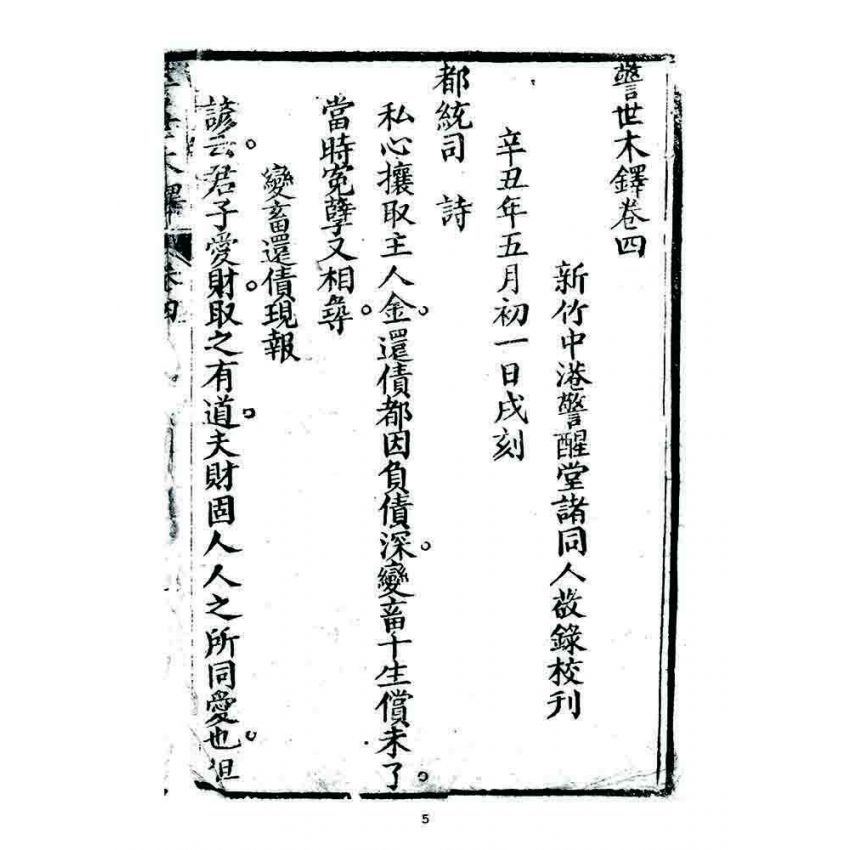 警世木鐸卷四
新竹中港警醒堂諸同人敬錄校刊
辛丑年五月初一日戌刻
都統司 詩
私心攘取主人金。還債都因負債深。變畜千生償未了。
當時冤孽又相尋。
變畜還債現報
諺云。君子愛財。取之有道。夫財固人人之所同愛也。但
警世木鐸 卷四
5